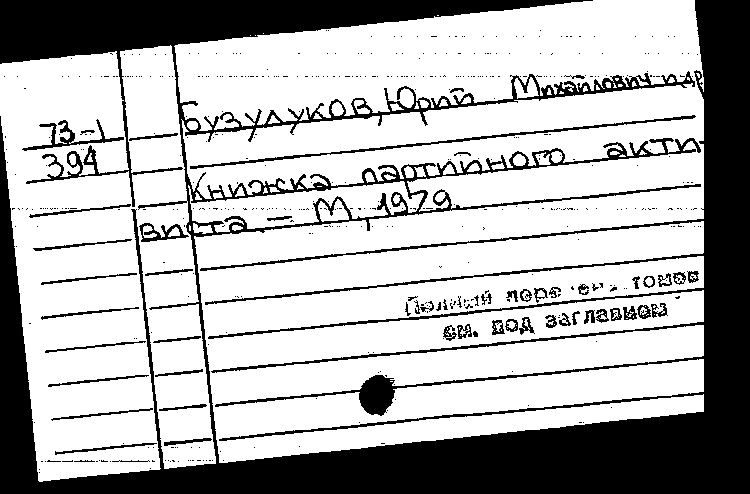 73-1
394
Бузулуков, Юрий Михайлович и др
Книжка партийного акти-
виста. – М., 1979.
Полный перечень томов
см. под заглавием